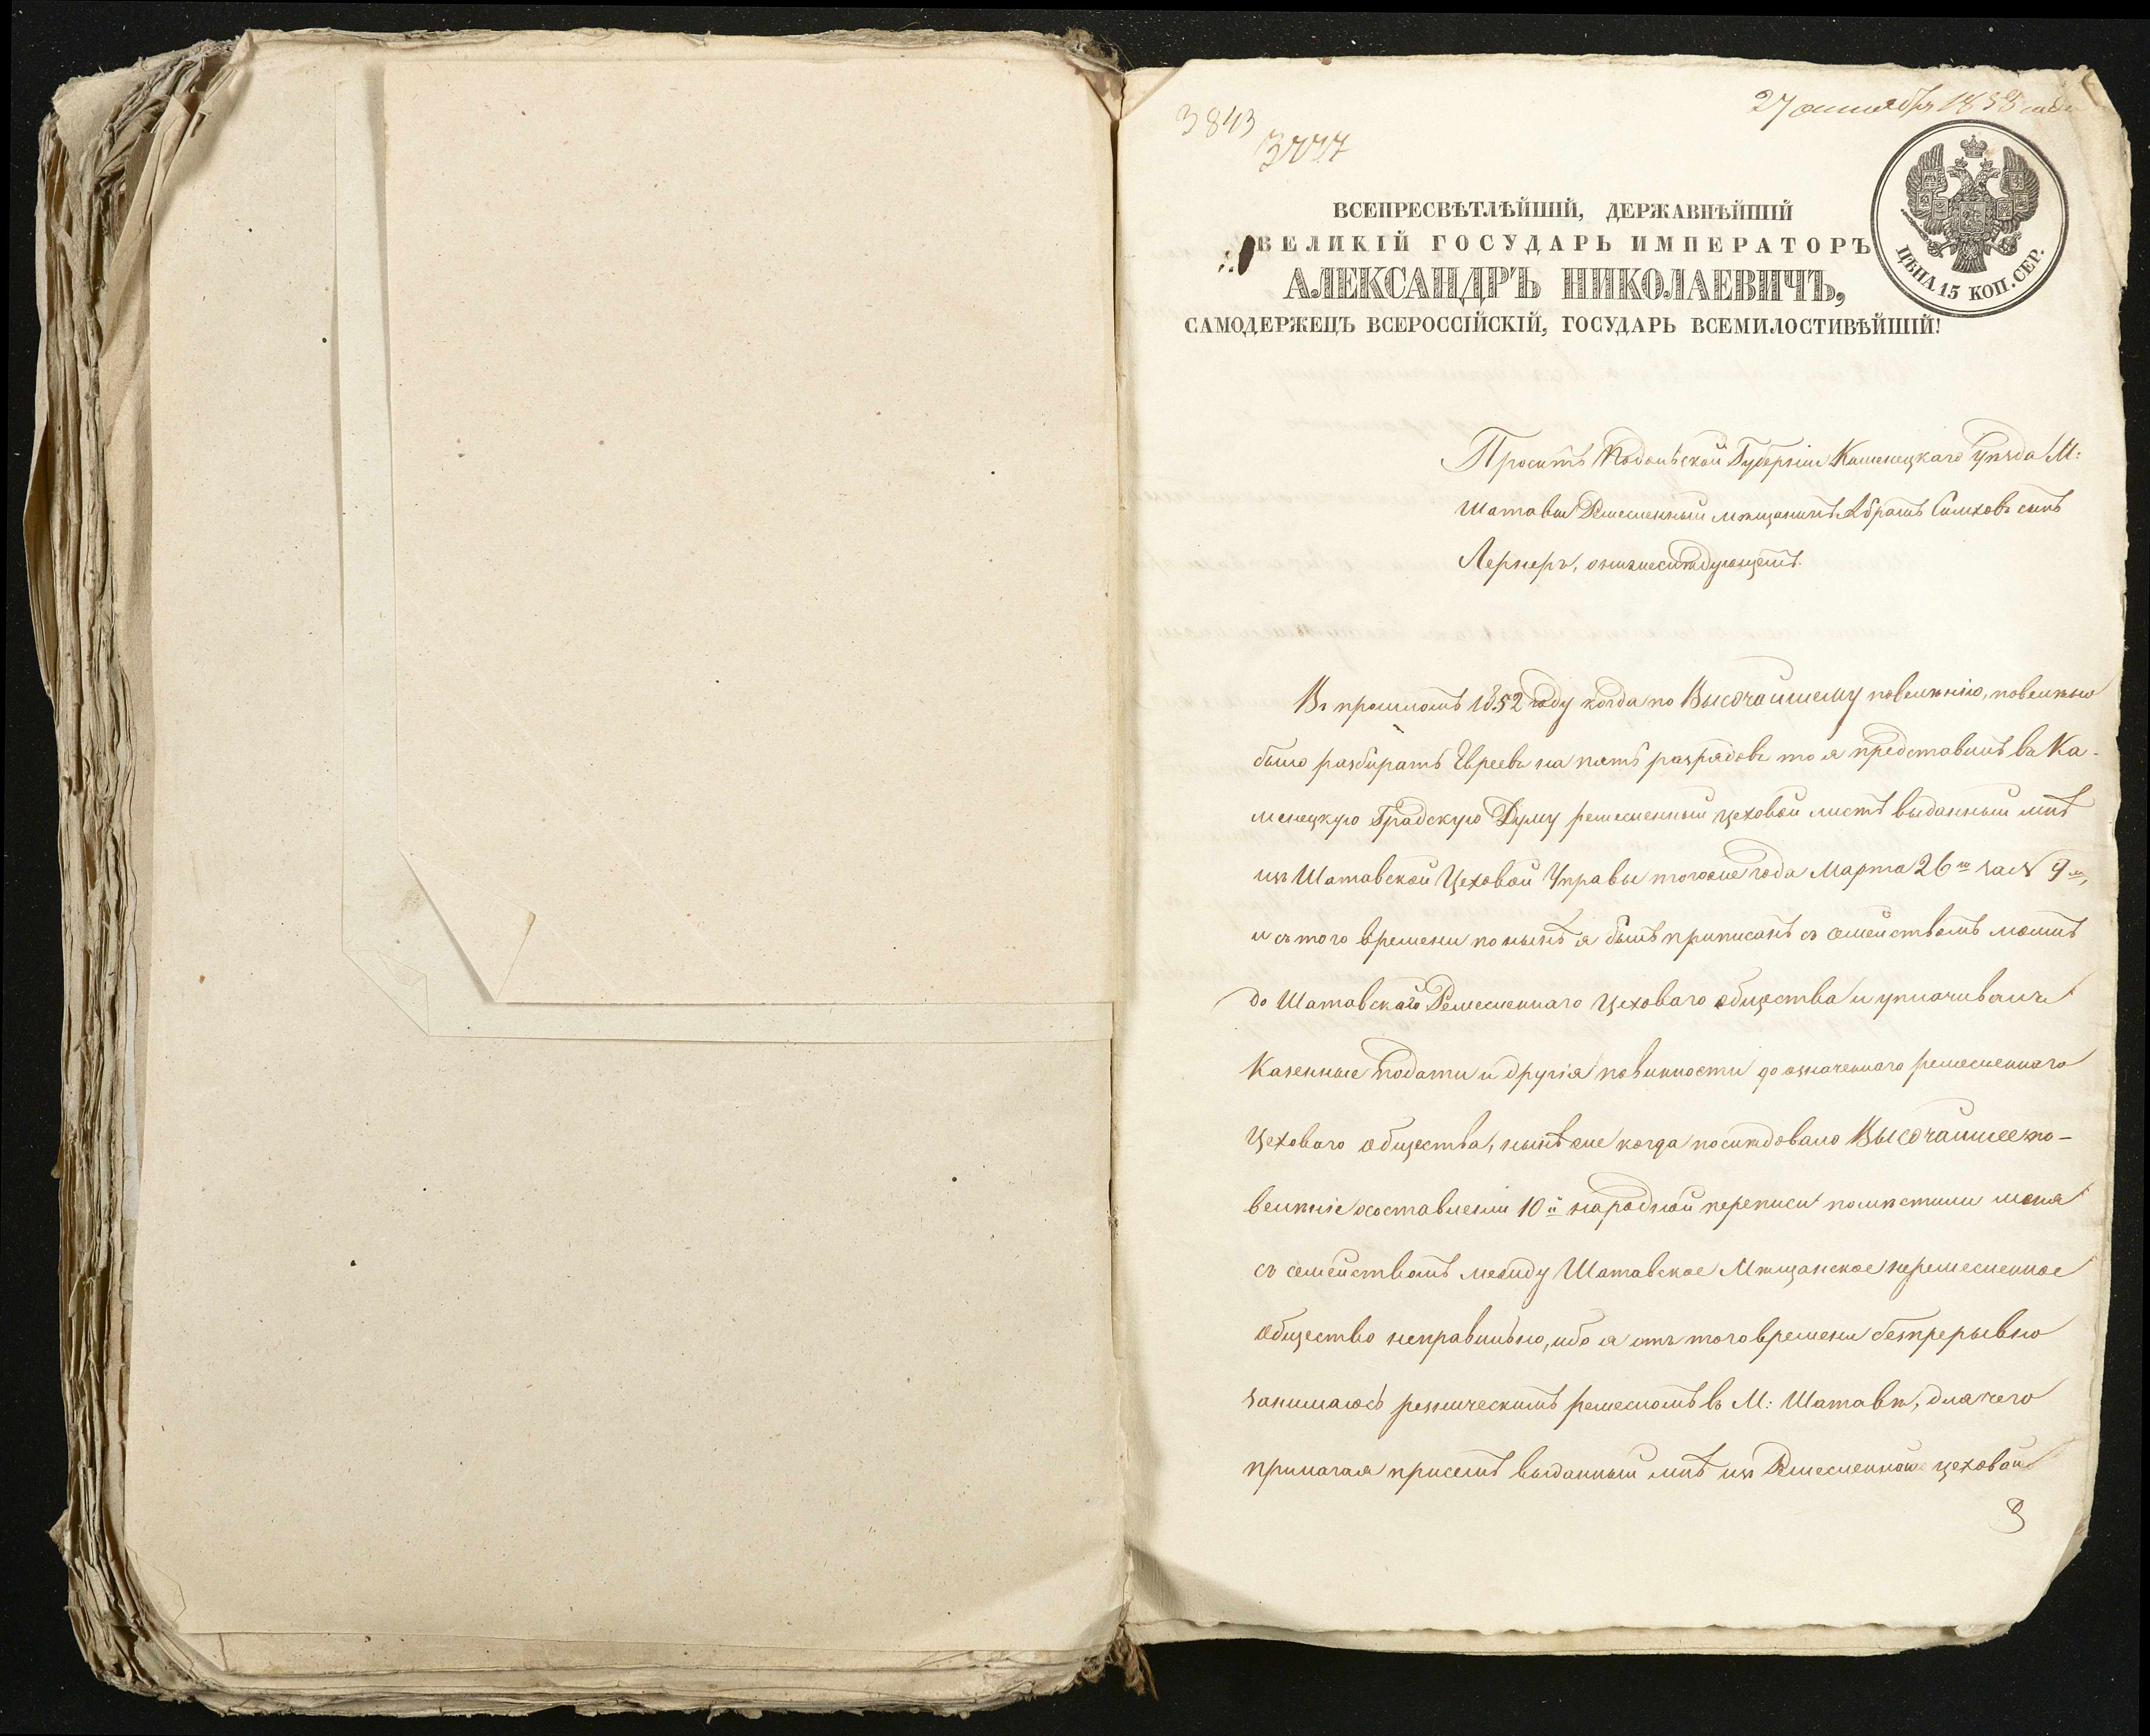 27 октября 1858 года
3843
3777
ВСЕПРЕСВѢТЛѢЙШІЙ, ДЕРЖАВНѢЙШІЙ
ВЕЛИКІЙ ГОСУДАРЬ ИМПЕРАТОРЪ
АЛЕКСАНДРЪ НИКОЛАЕВИЧЪ,
САМОДЕРЖЕЦЪ ВСЕРОССІЙСКІЙ, ГОСУДАРЬ ВСЕМИЛОСТИВѢЙШІЙ!
ЦѢНА 15 КОП. СЕР.
Проситъ Подольской Губерніи Каменецкаго уѣзда М:
Шатавы Ремесленный мѣщанинъ Абрамъ Симховъ сынъ
Лернеръ, о нижеслѣдующемъ.
Въ прошломъ 1852 году когда по Высочайшему повелѣнію, повелѣно
было разбирать Евреевъ на пять разрядовъ то я представилъ въ Ка-
менецкую Градскую Думу ремесленный цеховой листъ выданный мнѣ
изъ Шатавской Цеховой Управы тогоже года Марта 26го за № 9м,
и съ того времени по нынѣ я былъ приписанъ съ семействомъ моимъ
до Шатавскаго Ремесленнаго Цеховаго общества и уплачивалъ
Казенные подати и другія повинности до означеннаго ремесленнаго
Цеховаго общества, нынѣ же когда послѣдовало Высочайшее по-
велѣніе о составленіи 10й народной переписи помѣстили меня
съ семействомъ между Шатавское Мѣщанское неремесленное
общество неправильно, ибо я отъ того времени безпрерывно
занимаюсь резническимъ ремесломъ въ М: Шатавѣ, для чего
прилагая присемъ выданный мнѣ изъ Ремесленной цеховой